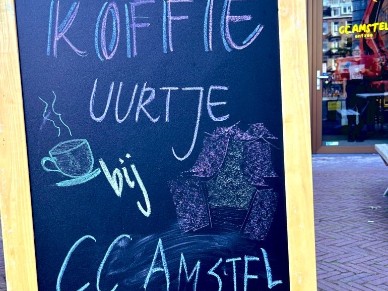 KOFFIE
UURTJE
bij
CC AMSTEL
CC AMSTEL